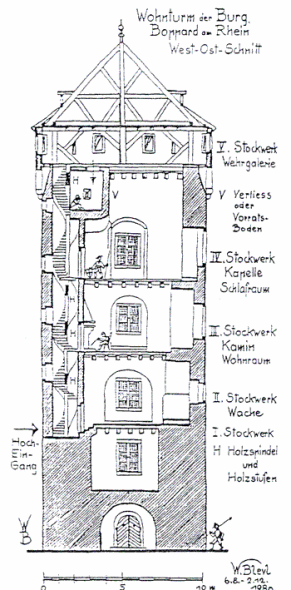 Wohnturm der Burg,
Boppard am Rhein
West-Ost-Schnitt
V. Stockwerk
Wehrgalerie
V Verliess
oder
Vorrats-
Boden
IV. Stockwerk
Kapelle
Schlafraum
III. Stockwerk
Kamin
Wohnraum
II. Stockwerk
Wache
I. Stockwerk
H Holzspindel
und
Holzstufen
Hoch-
Ein-
Gang
H
V
H
H
H
W
B
W. Bleyl
6.8.-2.12.
0
5
10 m